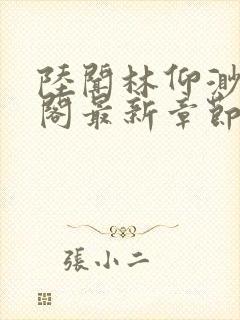 陸聞林仰渺
閣最新章節
張小二